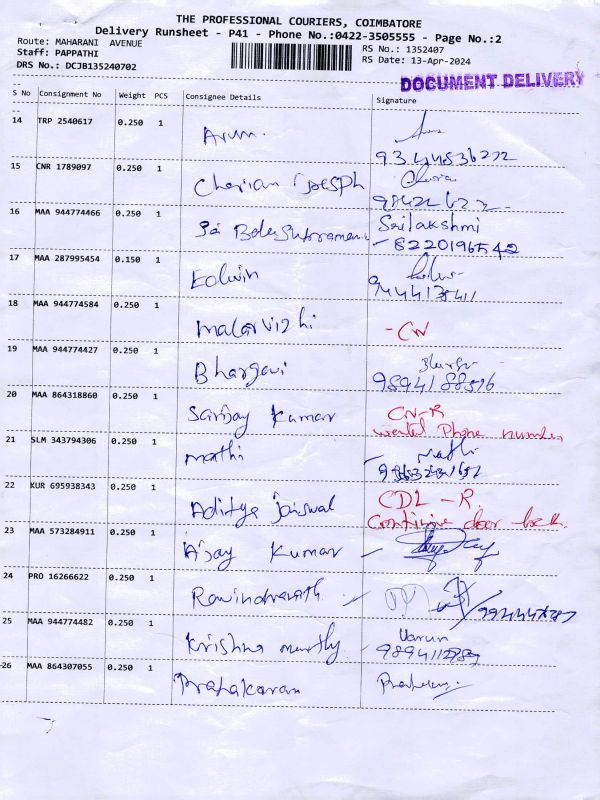 THE PROFESSIONAL COURIERS, COIMBATORE
Delivery Runsheet - P41 - Phone No.:0422-3505555 - Page No.:2
Route: MAHARANI AVENUE
RS No.: 1352407
Staff: PAPPATHI
RS Date: 13-Apr-2024
DRS No.: DCJB135240702
DOCUMENT DELIVERY
S No Consignment No Weight PCS Consignee Details Signature
14 TRP 2540617 0.250 1 Arun.
15 CNR 1789097 0.250 1 Cherian
16 MAA 944774466 0.250 1 Sai Sailakshmi
- 8220196542
17 MAA 287995454 0.150 1 Edwin
18 MAA 944774584 0.250 1 malarvizhi - CN
19 MAA 944774427 0.250 1 Bhargavi
20 MAA 864318860 0.250 1 Sanjay Kumar CN-R
Phone number
21 SLM 343794306 0.250 1 mathi - Mathi
22 KUR 695938343 0.250 1 Aditya jaiswal CDL - R.
door
23 MAA 573284911 0.250 1 Ajay Kumar
24 PRO 16266622 0.250 1 Ravindranath
25 MAA 944774482 0.250 1 Krishna Varun
26 MAA 864307055 0.250 1 Prapakaran